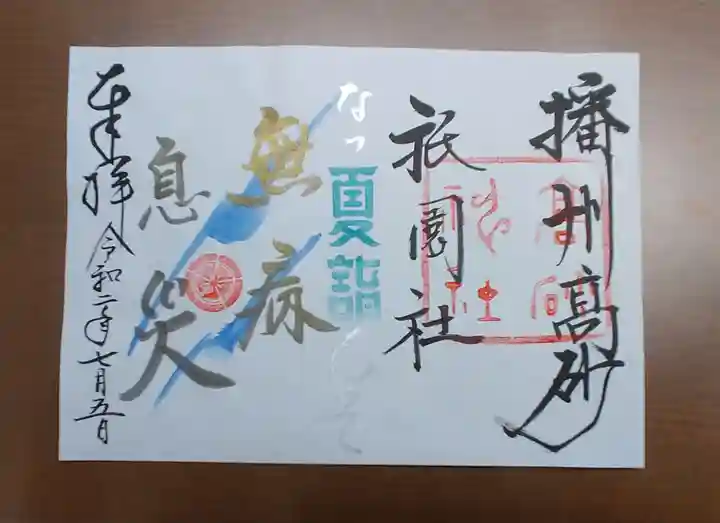 播州高砂
祇園社
なつ
夏詣
無病
息災
奉拝
令和二年七月五日